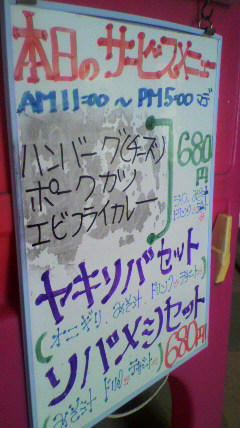 本日のサービスメニュー
AM11:00 ～ PM5:00 マデ
ハンバーグ(チーズ)
ポークカツ
エビフライカレー
680円
ヤキソバセット
(オニギリ、みそ汁、ドリンク
ソバメシセット
(みそ汁
680円